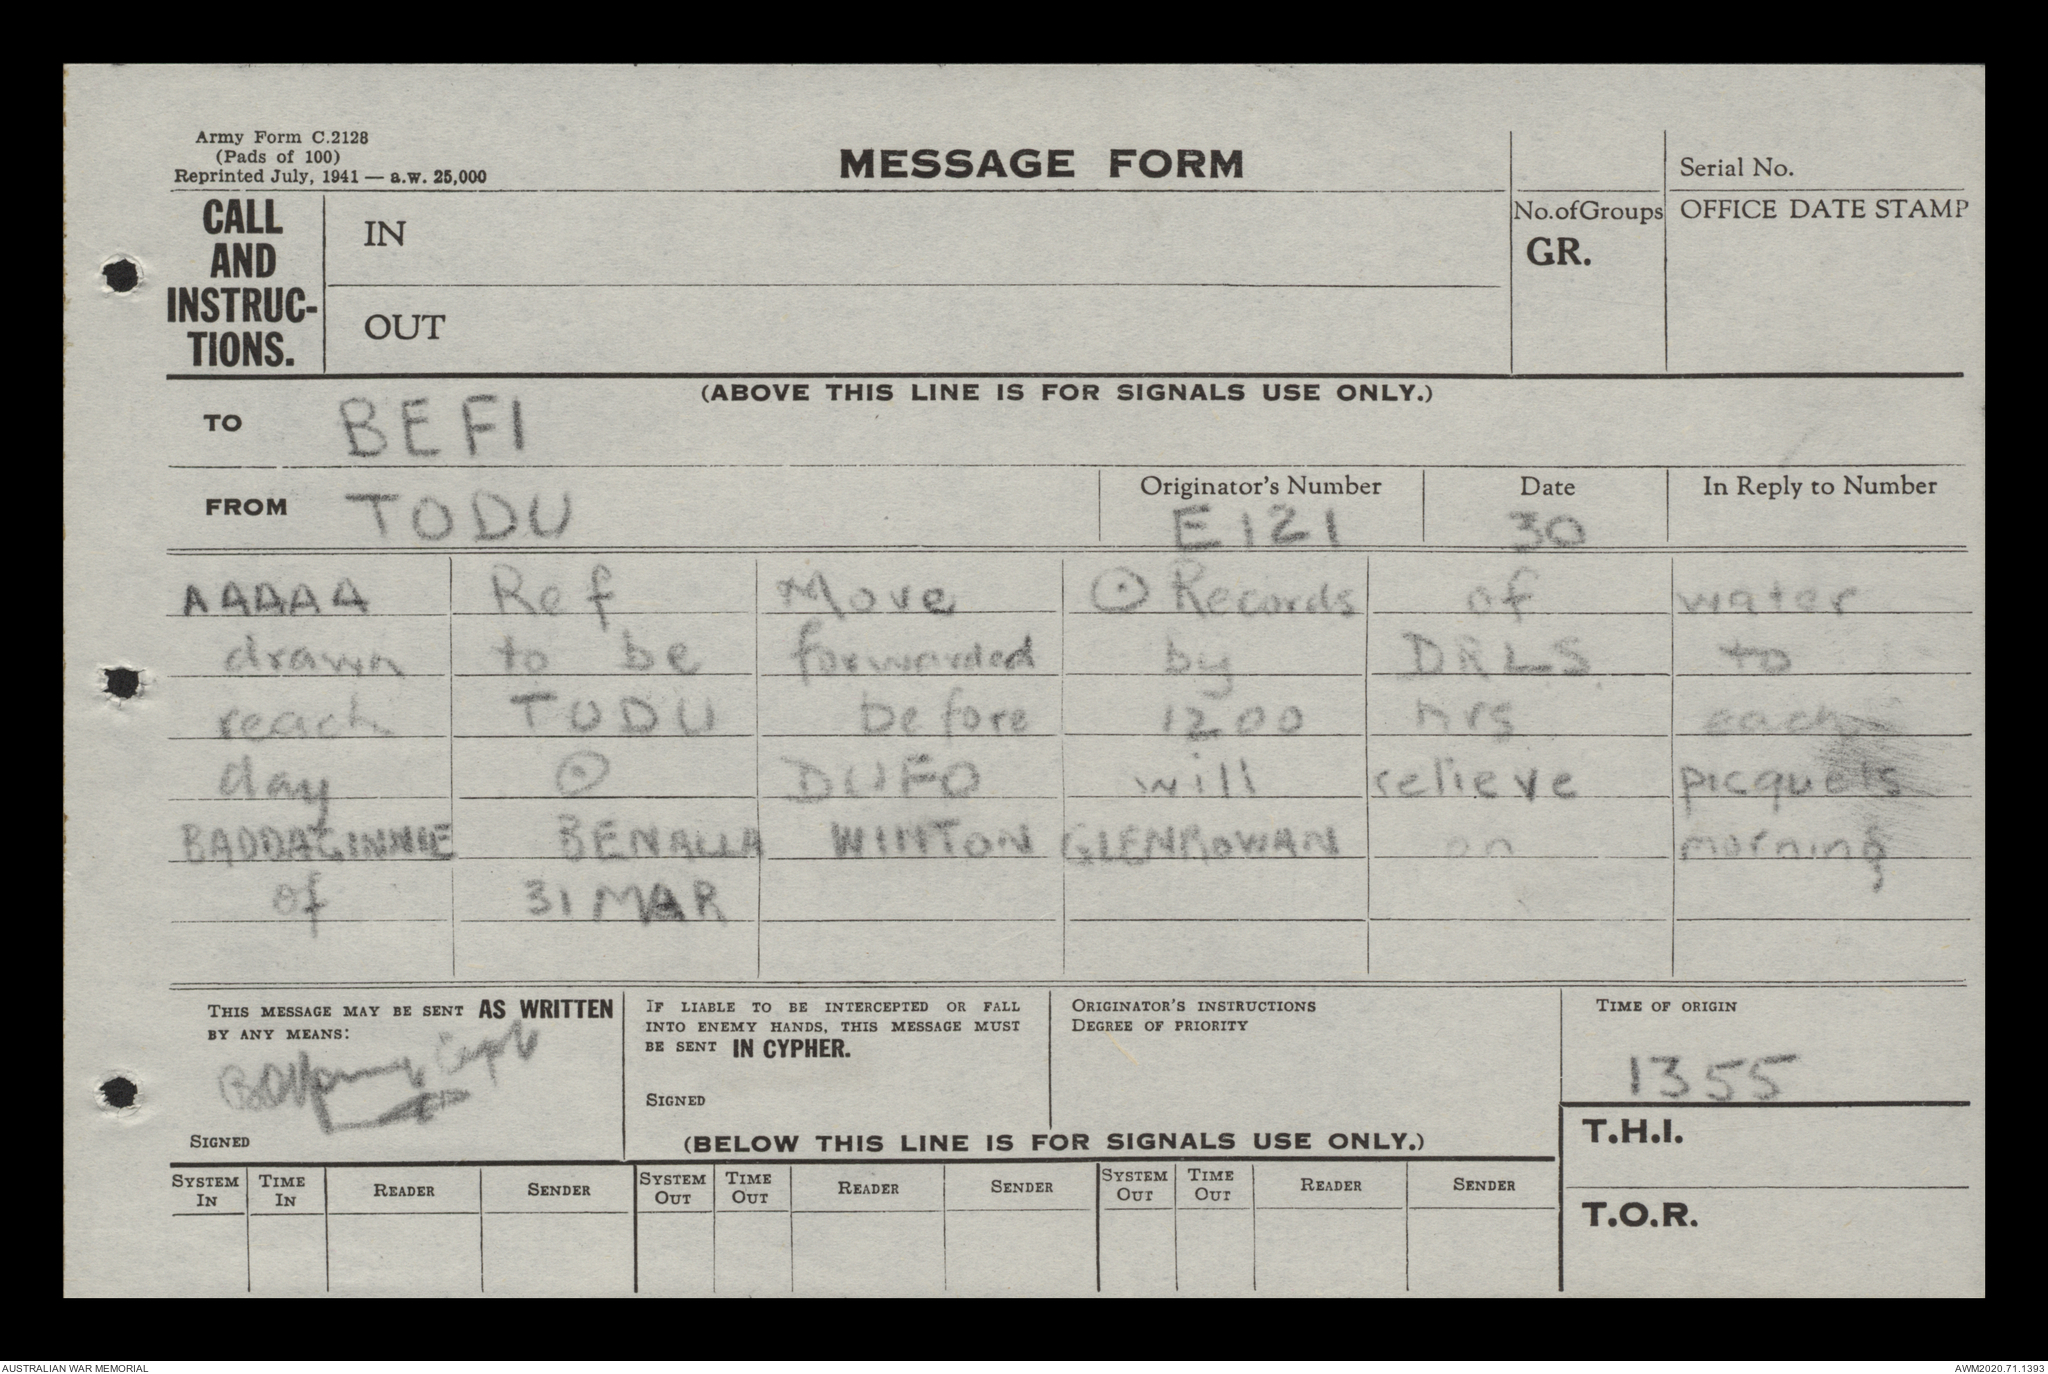 Army Form C.2128
(Pads of 100)
Reprinted July, 1941 — a.w. 25,000
MESSAGE FORM
Serial No.
CALL AND INSTRUC-TIONS.
IN
OUT
No. of Groups
GR.
OFFICE DATE STAMP
(ABOVE THIS LINE IS FOR SIGNALS USE ONLY.)
TO BEFI
FROM TODU
Originator's Number E121
Date 30
In Reply to Number
AAAAA Ref Move ⊙ Records of water
drawn to be forwarded by D.R.L.S. to
reach TODU before 1200 hrs each
day ⊙ DUFO will relieve picquets
BADDAGINNIE BENALLA WINTON GLENROWAN on morning
of 31 MAR
THIS MESSAGE MAY BE SENT AS WRITTEN
BY ANY MEANS:
Capt
SIGNED
IF LIABLE TO BE INTERCEPTED OR FALL
INTO ENEMY HANDS, THIS MESSAGE MUST
BE SENT IN CYPHER.
SIGNED
ORIGINATOR'S INSTRUCTIONS
DEGREE OF PRIORITY
TIME OF ORIGIN
1355
T.H.I.
T.O.R.
(BELOW THIS LINE IS FOR SIGNALS USE ONLY.)
SYSTEM IN TIME IN READER SENDER SYSTEM OUT TIME OUT READER SENDER SYSTEM OUT TIME OUT READER SENDER
AUSTRALIAN WAR MEMORIAL
AWM2020.71.1393